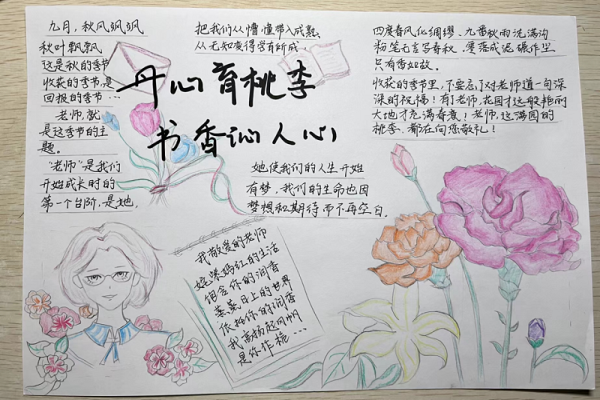 九月，秋风飒飒
秋叶飘飘
这是秋的季节
收获的季节,是
回报的季节…
老师,就
是这季节的主
题。
"老师"是我们
开始成长时的
第一个台阶,是她,
把我们从懵懂带入成熟
从无知变得学有所成
丹心育桃李
书香沁人心
她使我们的人生开始
有梦，我们的生命也因
梦想和期待而不再空白.
我敬爱的老师
姹紫嫣红的生活
饱含你的润香
蒸蒸日上的世界
依托你的润香
我高扬起风帆
是你作桅…
四度春风化绸缪,九番秋雨洗满沟
粉笔无言写春秋,零落成泥碾作尘
只有香如故。
收获的季节里,不要忘了对老师道一句深
深的祝福!有了老师,花园才这般艳丽
大地才充满春意!老师,这满园的
桃李,都在向您敬礼!